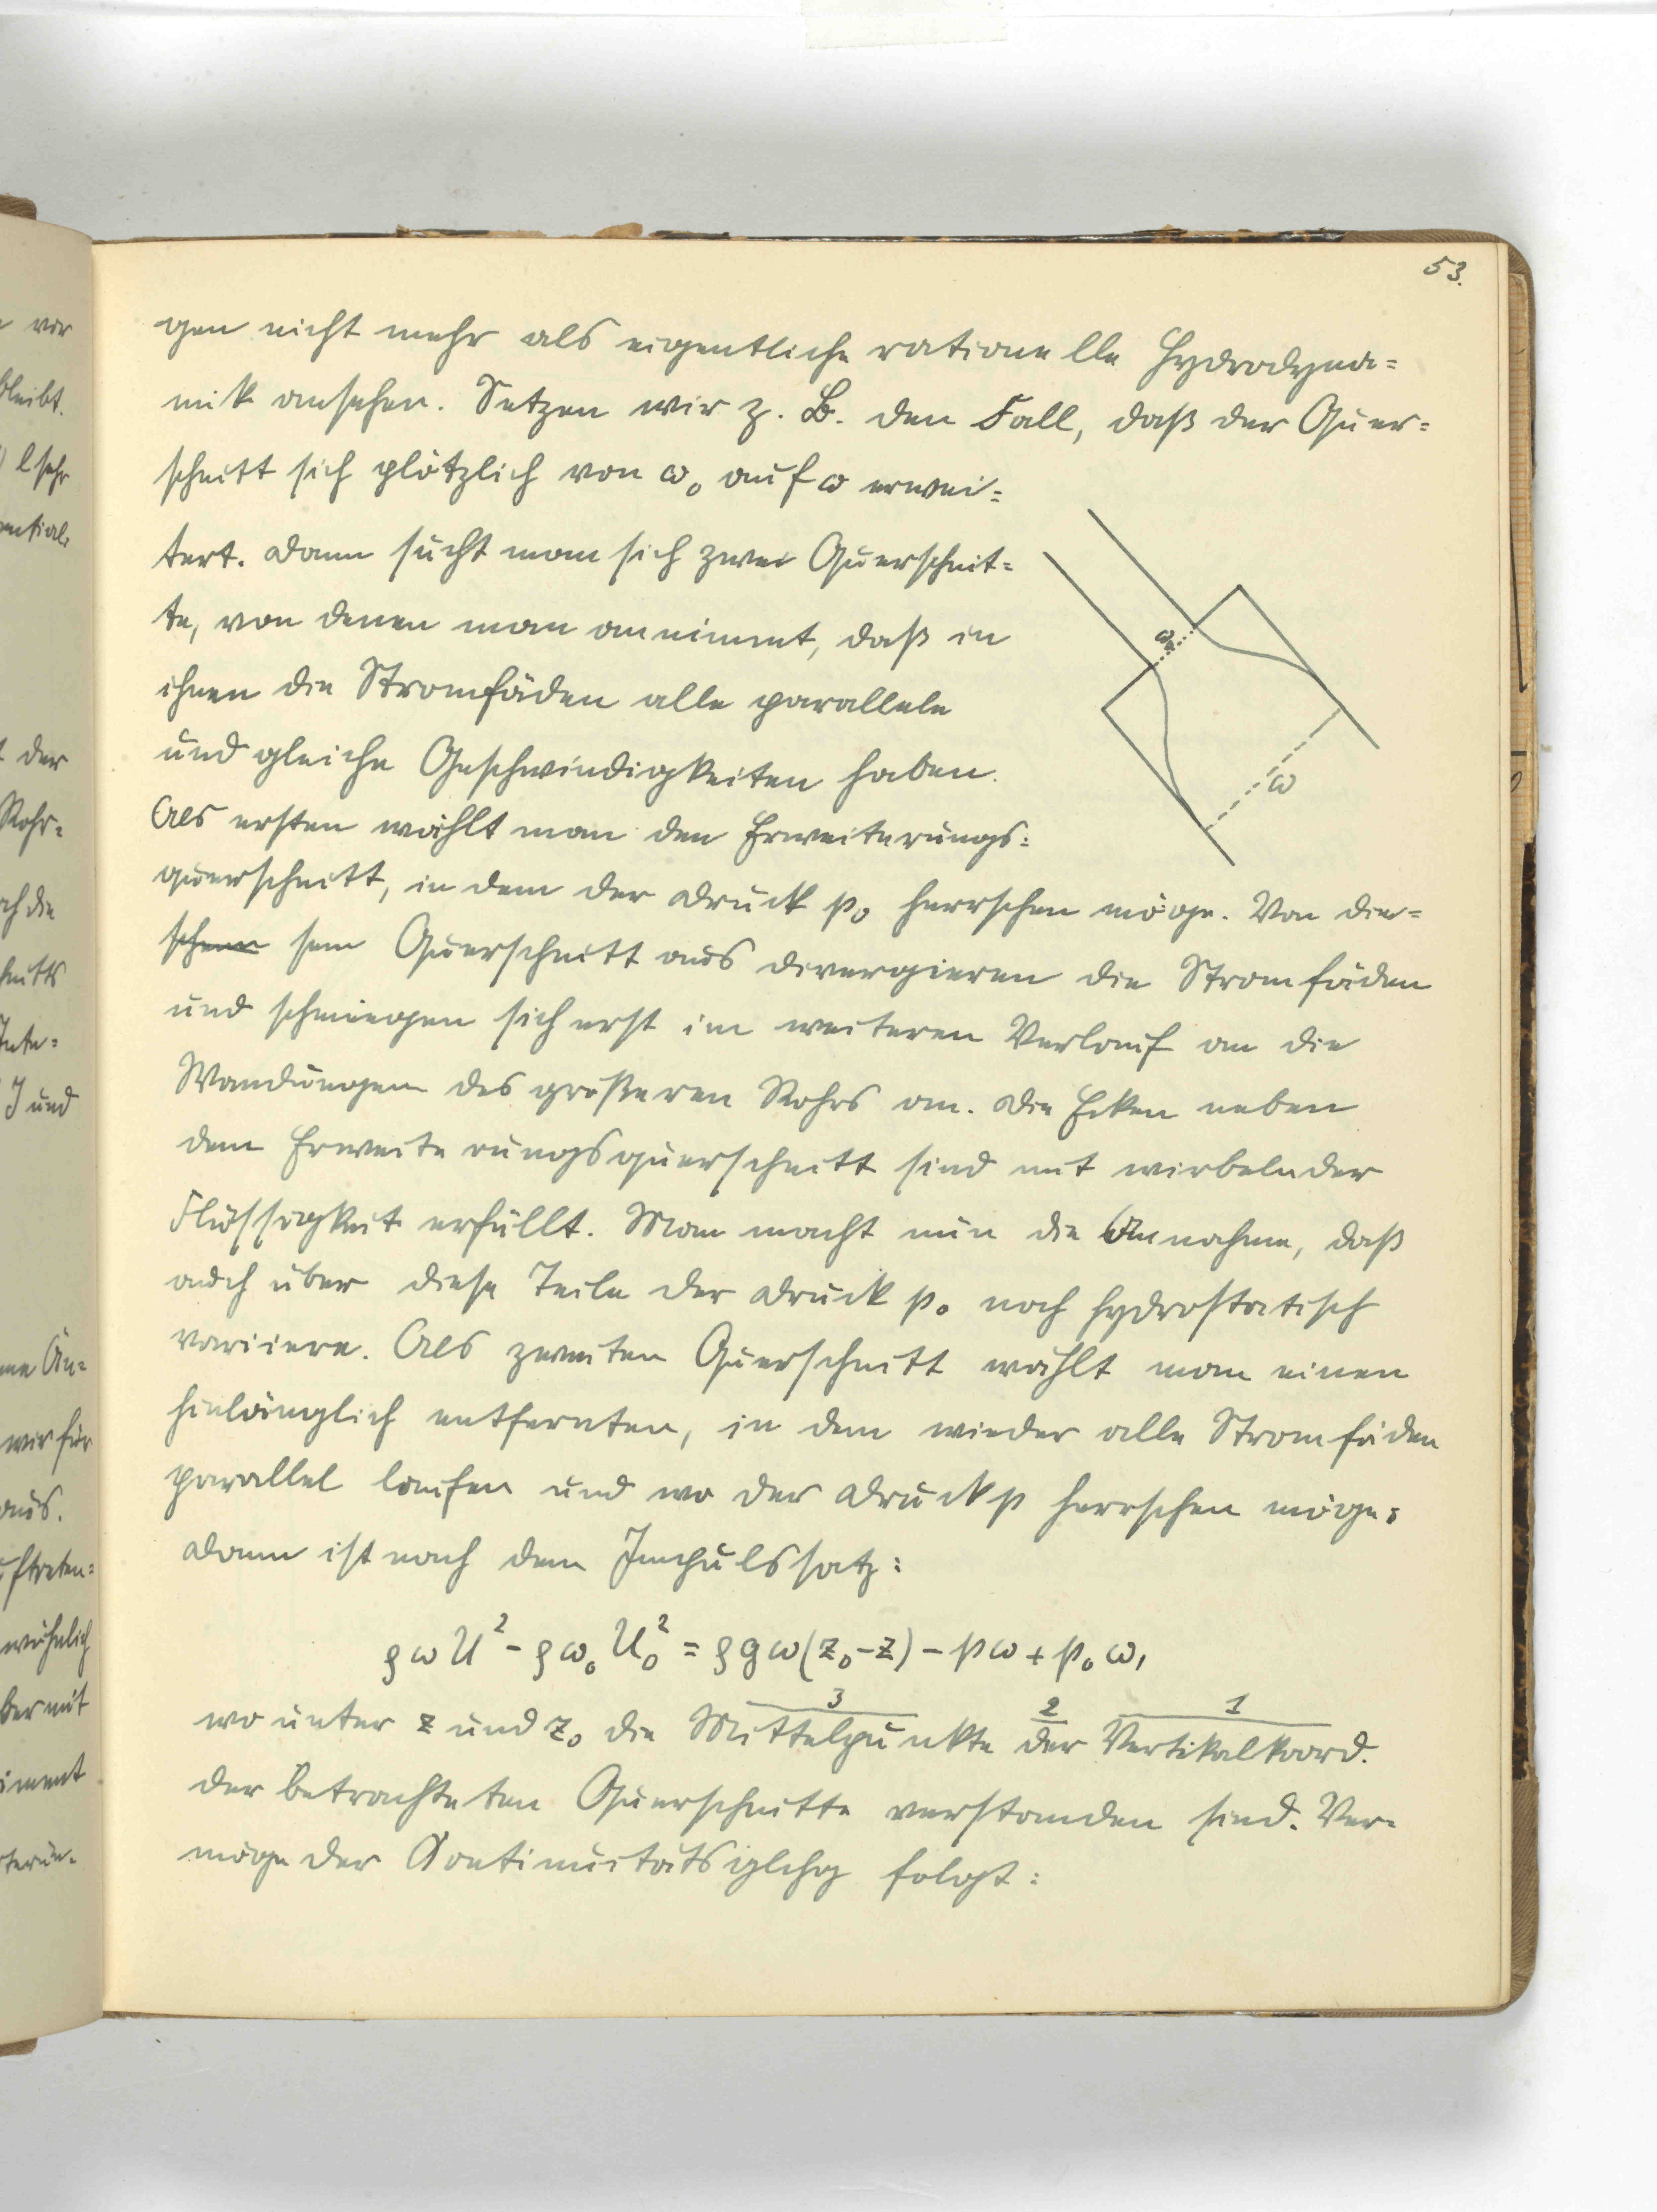 53.
gen nicht mehr als eigentliche rationelle Hydrodyna=
mik ansehen. Setzen wir z. B. den Fall, daß der Quer=
schnitt sich plötzlich von ω₀ auf ω erwei=
tert. Dann sucht man sich zwei Querschnit=
te, von denen man annimmt, daß in
ihnen die Stromfäden alle parallele
und gleiche Geschwindigkeiten haben.
Als ersten wählt man den Erweiterungs=
querschnitt, in dem der Druck p₀ herrschen möge. Von die=
sem Querschnitt aus divergieren die Stromfäden
und schmiegen sich erst im weiteren Verlauf an die
Wandungen des größeren Rohrs an. Die Ecken neben
dem Erweiterungsquerschnitt sind mit wirbelnder
Flüssigkeit erfüllt. Man macht nun die Annahme, daß
auch über diese Teile der Druck p₀ noch hydrostatisch
variiere. Als zweiten Querschnitt wählt man einen
hinlänglich entfernten, in dem wieder alle Stromfäden
parallel laufen und wo der Druck p herrschen möge;
Dann ist nach dem Impulssatz:
ρωU² - ρω₀U₀² = ρgω(z₀-z) - pω + p₀ω,
3 2 1
wo unter z und z₀ die Mittelpunkte der Vertikalkoord.
der betrachteten Querschnitte verstanden sind. Ver=
möge der Continuitätsglchg folgt:
ω₀
ω
vor
bleibt.
l sehr
der
Rohr=
ch die
J und
wir für
aus.
ber mit